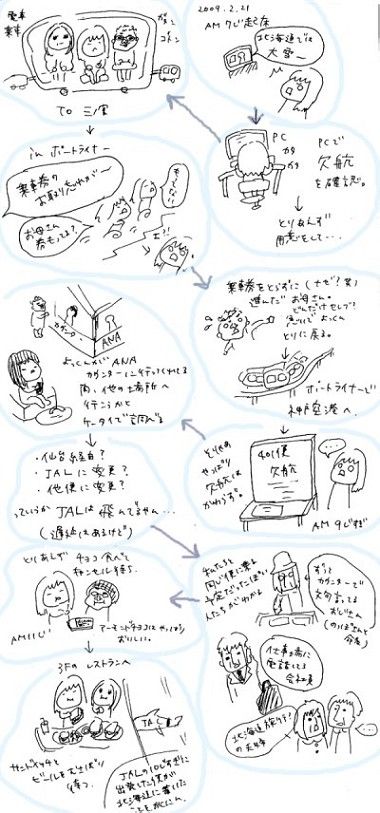 2009.2.21
AM 7じ起床
北海道では
大雪ー
PC
カタ
カタ
PCで
欠航
を確認。
とりあえず
用意をして…
電車
乗車
ガタン
ゴトン
TO 三ノ宮
in ポートライナー
乗車券の
お取り忘れがー
お母さん
券もってる?
もってない
え?!
乗車券をとらずに(ナゼ?笑)
進んだ お母さん。
とりに戻る。
ポートライナーで
神戸空港へ.
とりあえず
やっぱり
欠航は
かわらず。
401便
欠航
…
AM 9じすぎ
カウンター
ANA
よっくんがANA
カウンターに行ってくれてる
間、他の場所へ
行こうかと
ケータイで調べる
・仙台経由?
・JALに変更?
・他便に変更?
っていうか JALは飛んでるやん…
(遅延はあるけど)
私たちと
同じ便に乗る
予定だったっぽい
人たちがいわかる
ずっと
カウンターで
文句言ってる
おじさん
仕事場に
電話してる
会社員
北海道旅行?
の夫婦
…
とりあえず
チョコ食べて
キャンセル待ち.
AM11じ
アーモンドチョコはやっぱり
おいしい。
3Fの レストランへ
サンドイッチと
ビールをむさぼり
待つ.
JA
JALの10じすぎに
出発した便が
北海道に着いた
ことをかくにん。